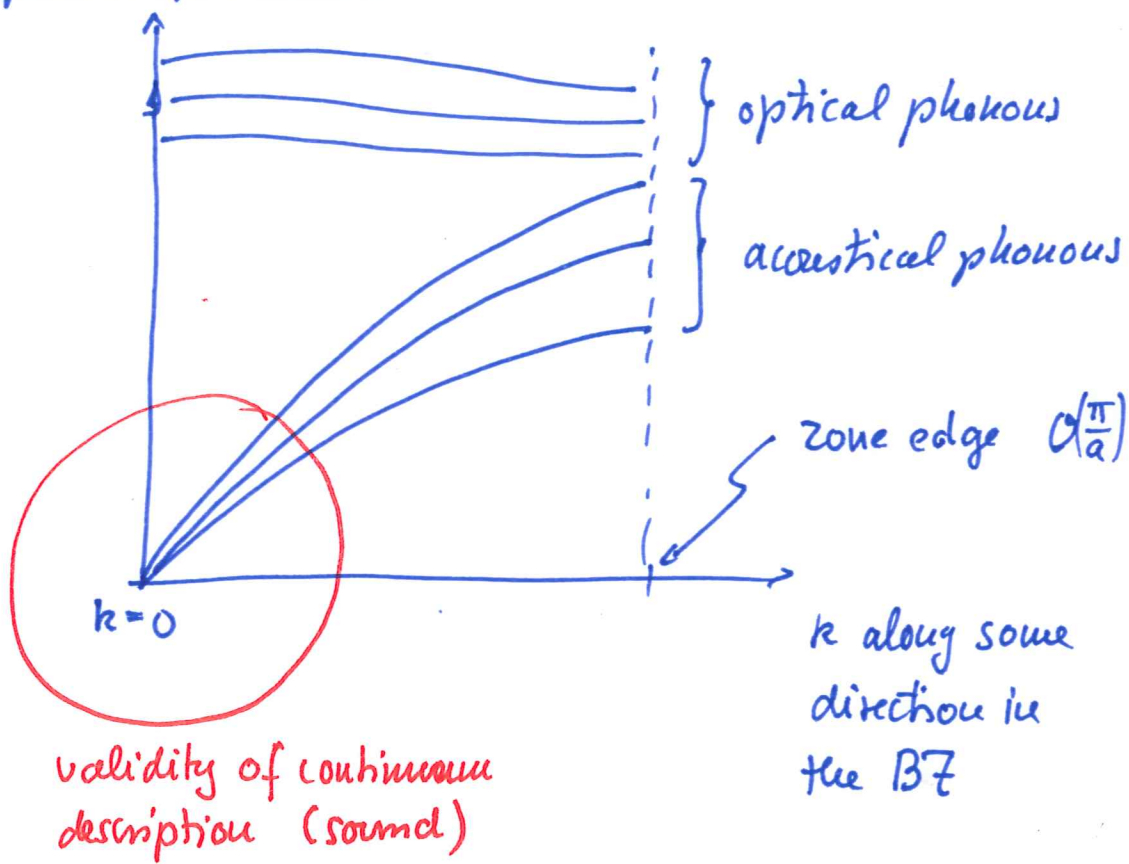 optical phonons
acoustical phonons
zone edge O(π/a)
k = 0
k along some
direction in
the BZ
validity of continuum
description (sound)